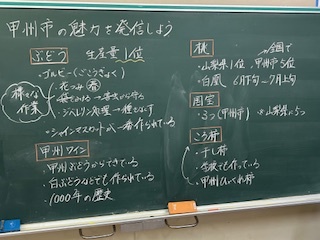 甲州市の魅力を発信しよう
ぶどう 生産量1位
・ルビー(ごこうきょく)
様々な作業
・花つみ
・袋でつける→害虫から守る
・ジベレリン処理→種をなくす
・シャインマスカットが一番作られている
甲州ワイン
・甲州ぶどうからできている
・白ぶどうなどでも作られている
・1000年の歴史
桃 ※全国で
・山梨県1位、甲州市5位
・白鳳 6月下旬〜7月上旬
国宝
・3つ(甲州市) ※山梨県に5つ
ころ柿
・干し柿
・学校でも作っている
・甲州ひゃくれ柿